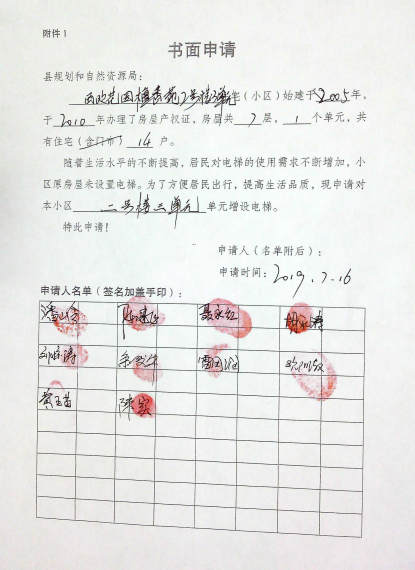 附件1
书面申请
县规划和自然资源局：
2号楼3单元住宅（小区）始建于2005年，
于2010年办理了房屋产权证，房屋共7层，1个单元，共
有住宅（含门市）14户。
随着生活水平的不断提高，居民对电梯的使用需求不断增加，小
区原房屋未设置电梯。为了方便居民出行，提高生活品质，现申请对
本小区二号楼三单元单元增设电梯。
特此申请！
申请人（名单附后）：
申请时间：2019.7.16
申请人名单（签名加盖手印）：
聂永红
黄玉英 陈宏